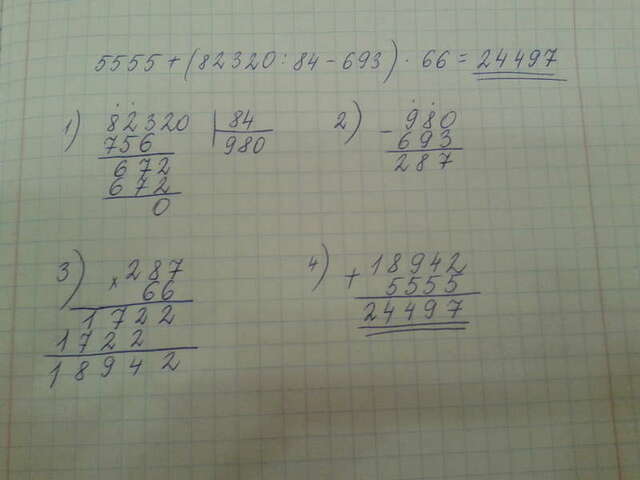 5555+(82320:84-693)·66=24497
1) 82320 | 84
756 980
672
672
0
2) - 980
693
287
3) × 287
66
1722
1722
18942
4) + 18942
5555
24497